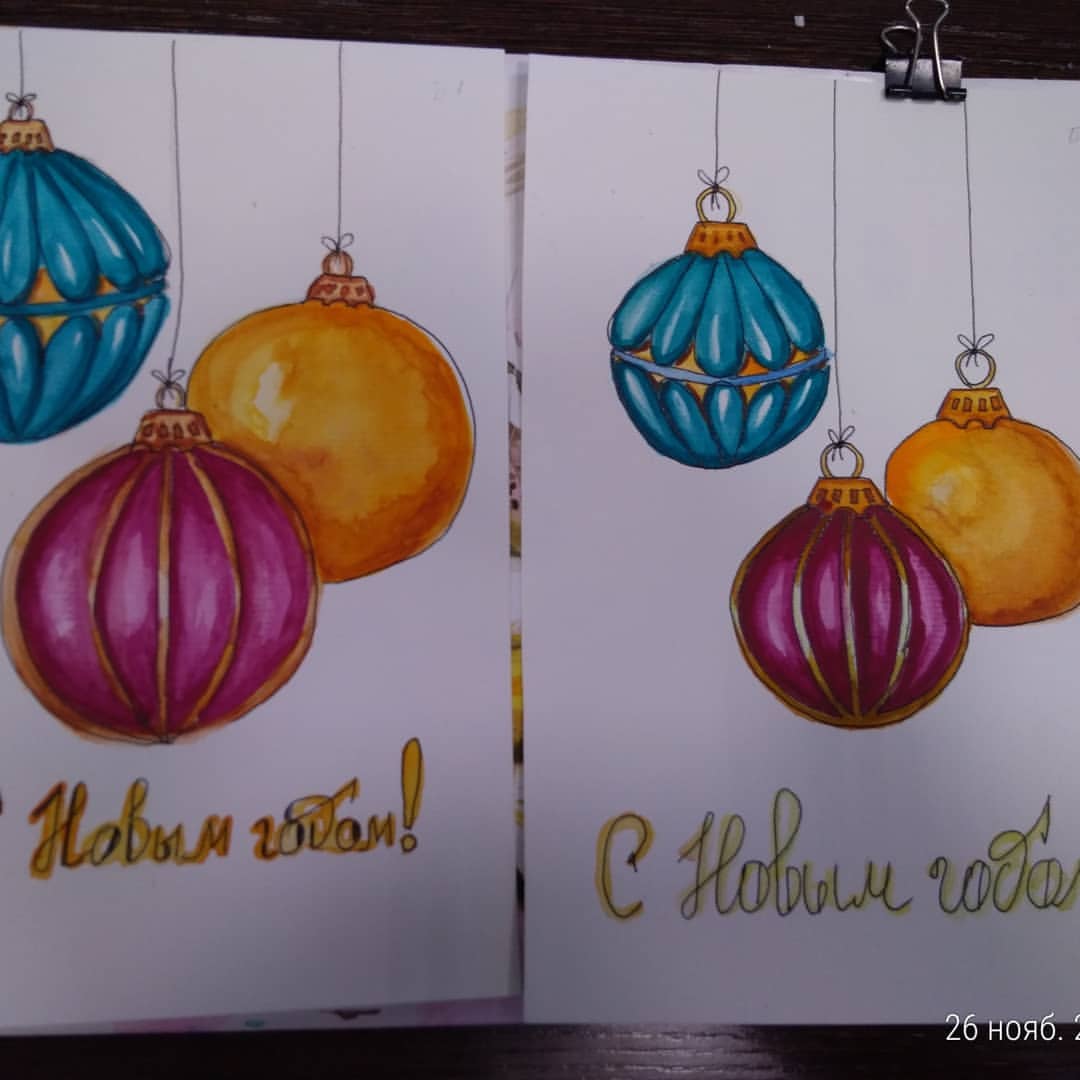 С Новым годом!
С Новым годом
26 нояб. 2